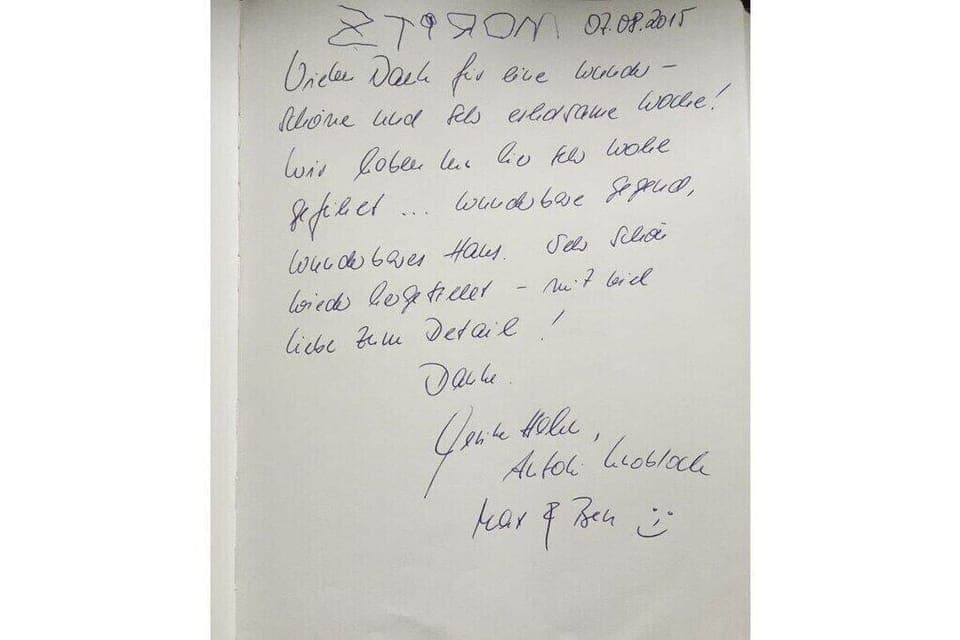 ZTIROM 07.08.2015
Vielen Dank für eine wunder-
schöne und sehr erholsame Woche!
Wir haben uns hier sehr wohl
gefühlt ... wunderbare Gegend,
wunderbares Haus. Sehr schön
wieder hergestellt - mit viel
Liebe zum Detail!
Danke.
Antoni Knobloch
Max & Ben